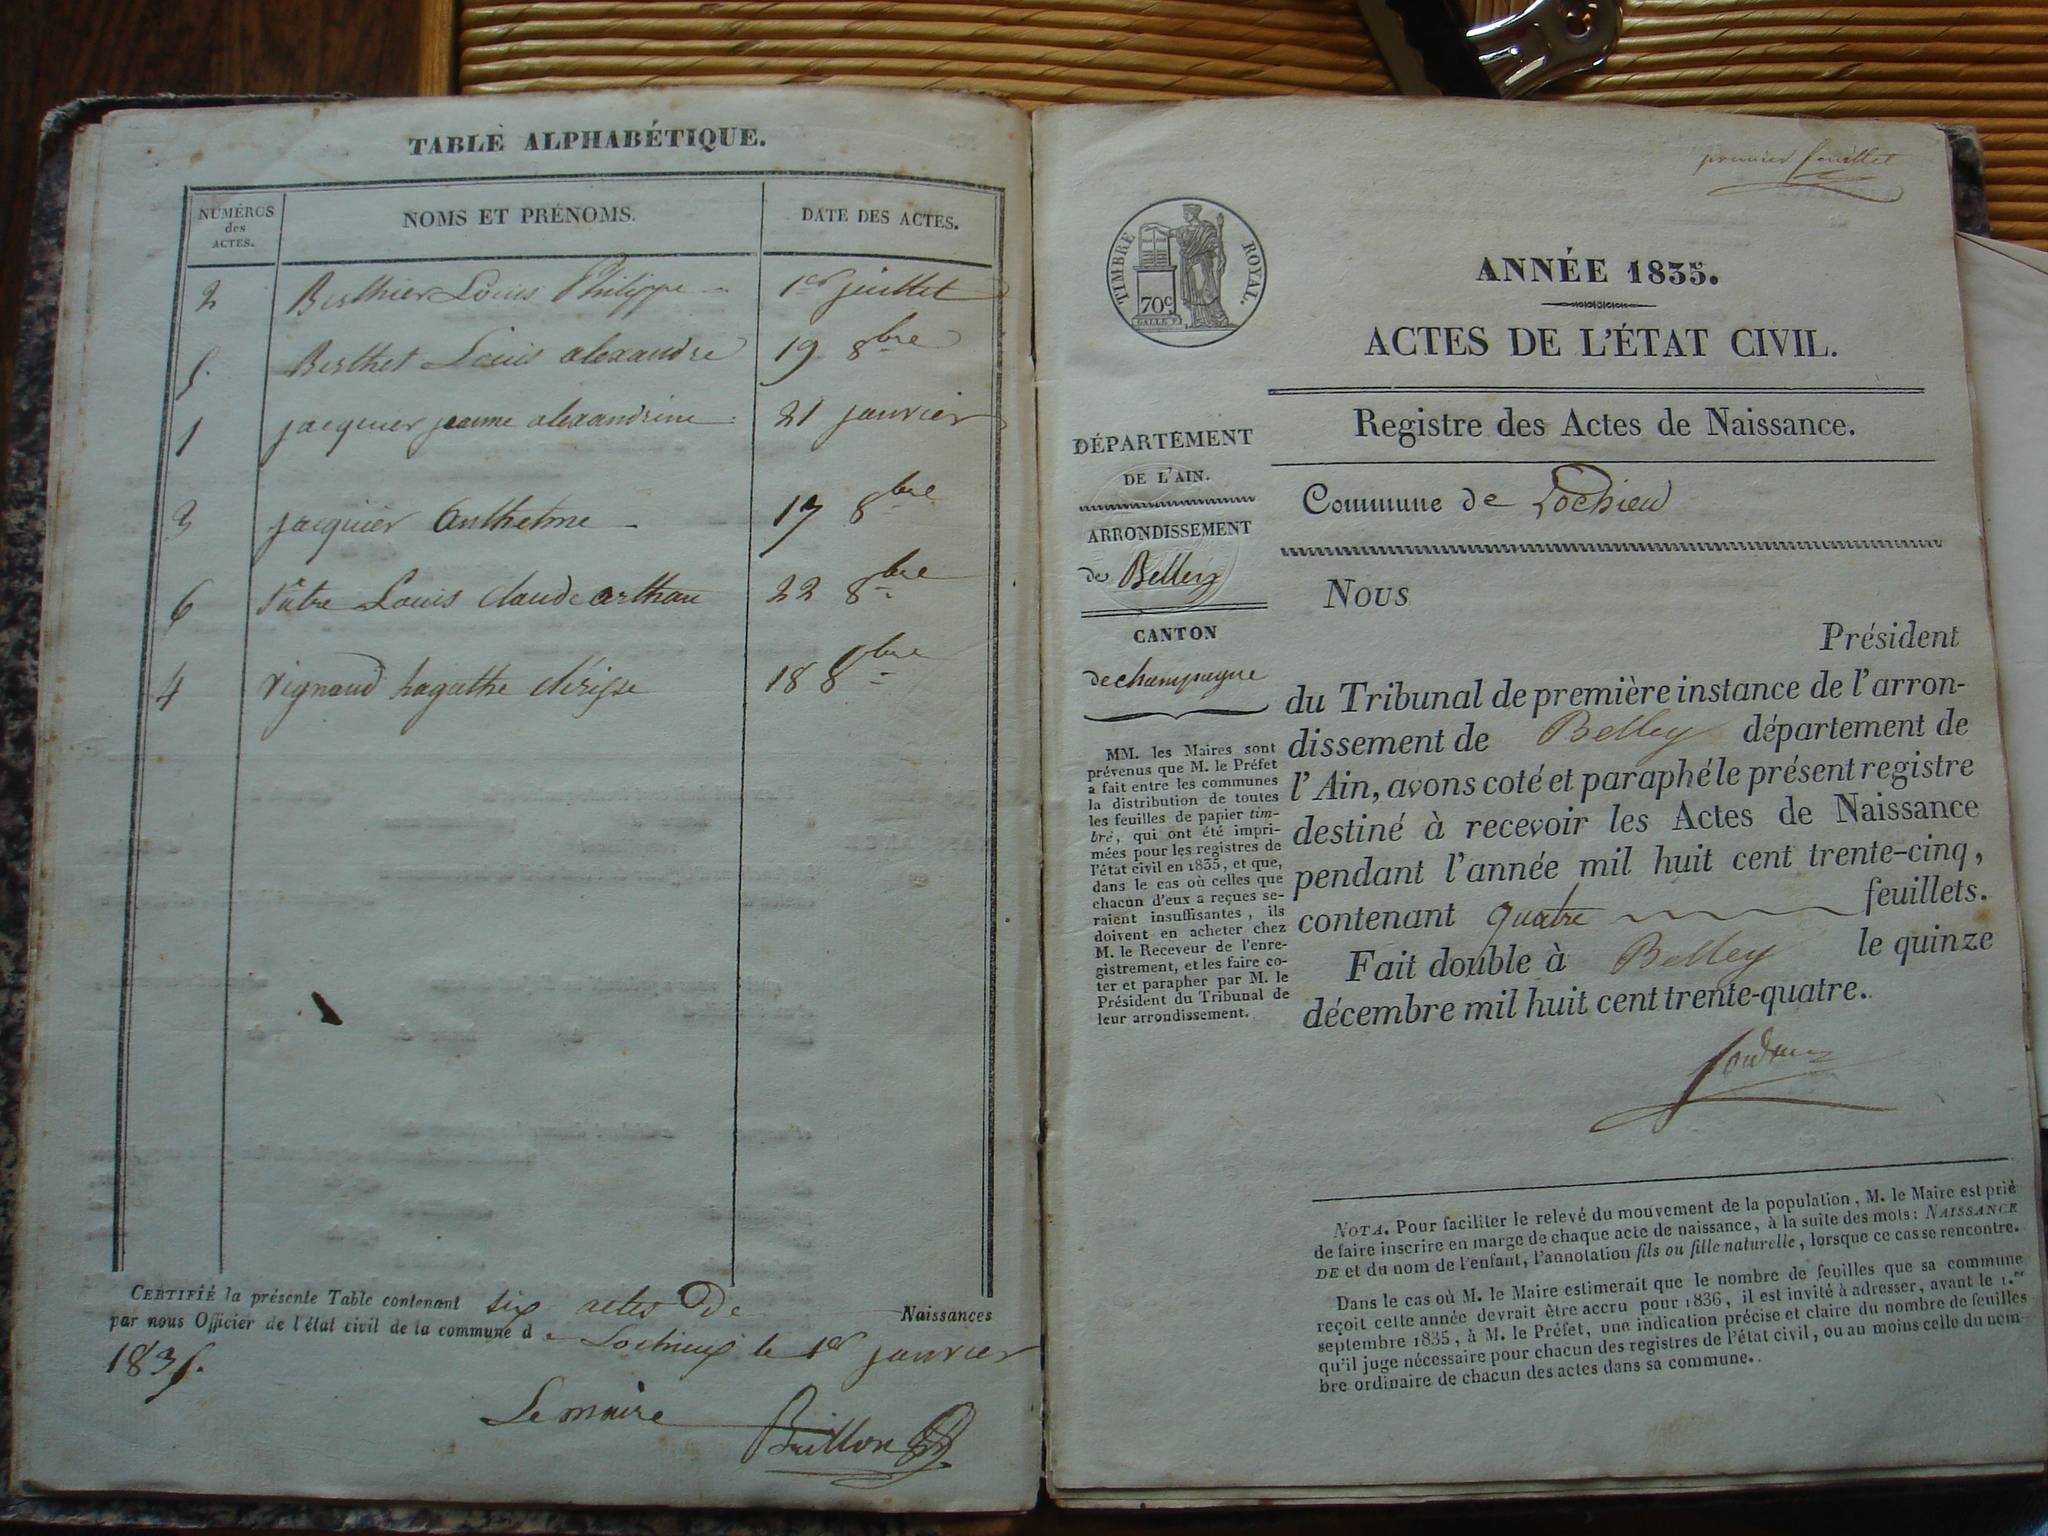 TABLE ALPHABÉTIQUE.
NUMÉROS des ACTES. NOMS ET PRÉNOMS. DATE DES ACTES.
2 Berthier Louis Philippe 1er juillet
5. Berthet Louis alexandre 19 8bre
1 jacquier jeanne alexandrine 21 janvier
3 jacquier Anthelme 17 8bre
6 Louis Claude 22 8bre
4 Vignaud hagathe 18 8bre
CERTIFIÉ la présente Table contenant six actes de Naissances
par nous Officier de l'état civil de la commune de Lochieux le 1er janvier
1835.
Le maire
Buillon
premier feuillet
TIMBRE ROYAL.
70c
ANNÉE 1835.
ACTES DE L'ÉTAT CIVIL.
Registre des Actes de Naissance.
Commune de Lochieu
DÉPARTEMENT
DE L'AIN.
ARRONDISSEMENT
de Belley
CANTON
de champagne
MM. les Maires sont
prévenus que M. le Préfet
a fait entre les communes
la distribution de toutes
les feuilles de papier tim-
bré, qui ont été impri-
mées pour les registres de
l'état civil en 1835, et que,
dans le cas où celles que
chacun d'eux a reçues se-
raient insuffisantes, ils
doivent en acheter chez
M. le Receveur de l'enre-
gistrement, et les faire co-
ter et parapher par M. le
Président du Tribunal de
leur arrondissement.
Nous
Président
du Tribunal de première instance de l'arron-
dissement de Belley département de
l'Ain, avons coté et paraphé le présent registre
destiné à recevoir les Actes de Naissance
pendant l'année mil huit cent trente-cinq,
contenant quatre feuillets.
Fait double à Belley le quinze
décembre mil huit cent trente-quatre.
NOTA. Pour faciliter le relevé du mouvement de la population, M. le Maire est prié
de faire inscrire en marge de chaque acte de naissance, à la suite des mots: NAISSANCE
DE et du nom de l'enfant, l'annotation fils ou fille naturelle, lorsque ce cas se rencontre.
Dans le cas où M. le Maire estimerait que le nombre de feuilles que sa commune
reçoit cette année devrait être accru pour 1836, il est invité à adresser, avant le 1.er
septembre 1835, à M. le Préfet, une indication précise et claire du nombre de feuilles
qu'il juge nécessaire pour chacun des registres de l'état civil, ou au moins celle du nom-
bre ordinaire de chacun des actes dans sa commune.